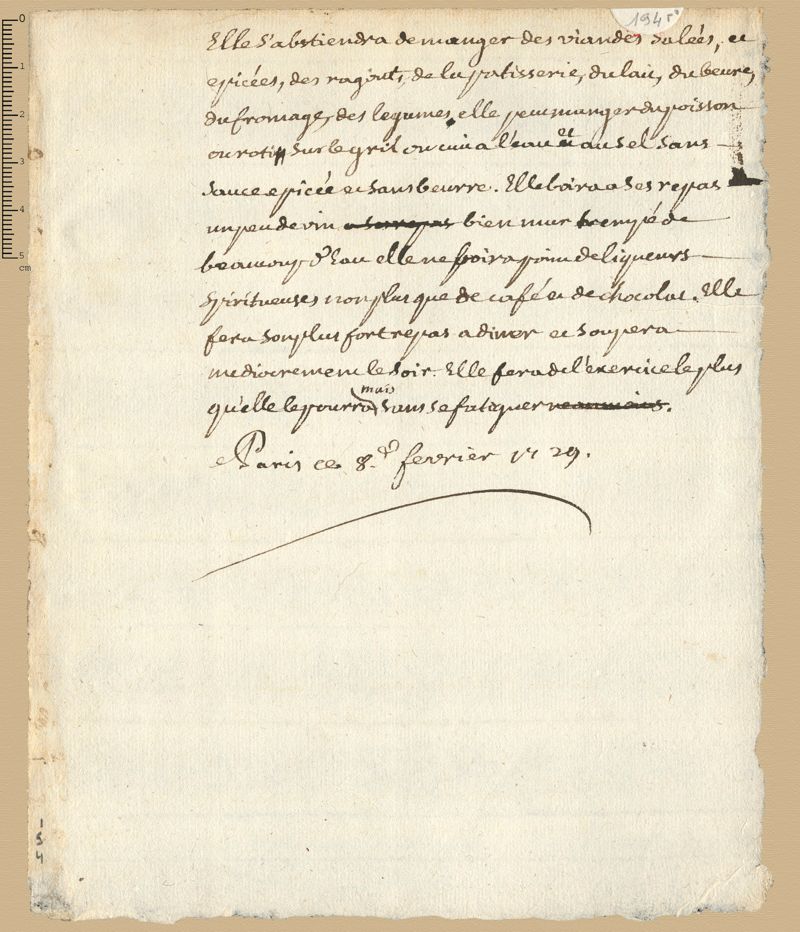 194 r°
Elle s'abstiendra de manger des viandes salées, et
epicées, des ragouts, de la patisserie, du lait, du beurre,
du fromage, des legumes, elle peut manger du poisson
ou roti sur le gril ou cuit a l'eau et au sel sans
sauce epicée et sans beurre. Elle boira a ses repas
un peu de vin a ses repas bien mur trempé de
beaucoup d'Eau elle ne boira point de liqueurs
spiritueuses non plus que de café et de chocolat. Elle
fera son plus fort repas a diner et soupera
mediocrement le soir. Elle fera de l'exercice le plus
qu'elle le pourra mais sans se fatiguer neanmoins.
a Paris ce 8.e fevrier 1729.
154
0
1
2
3
4
5
cm